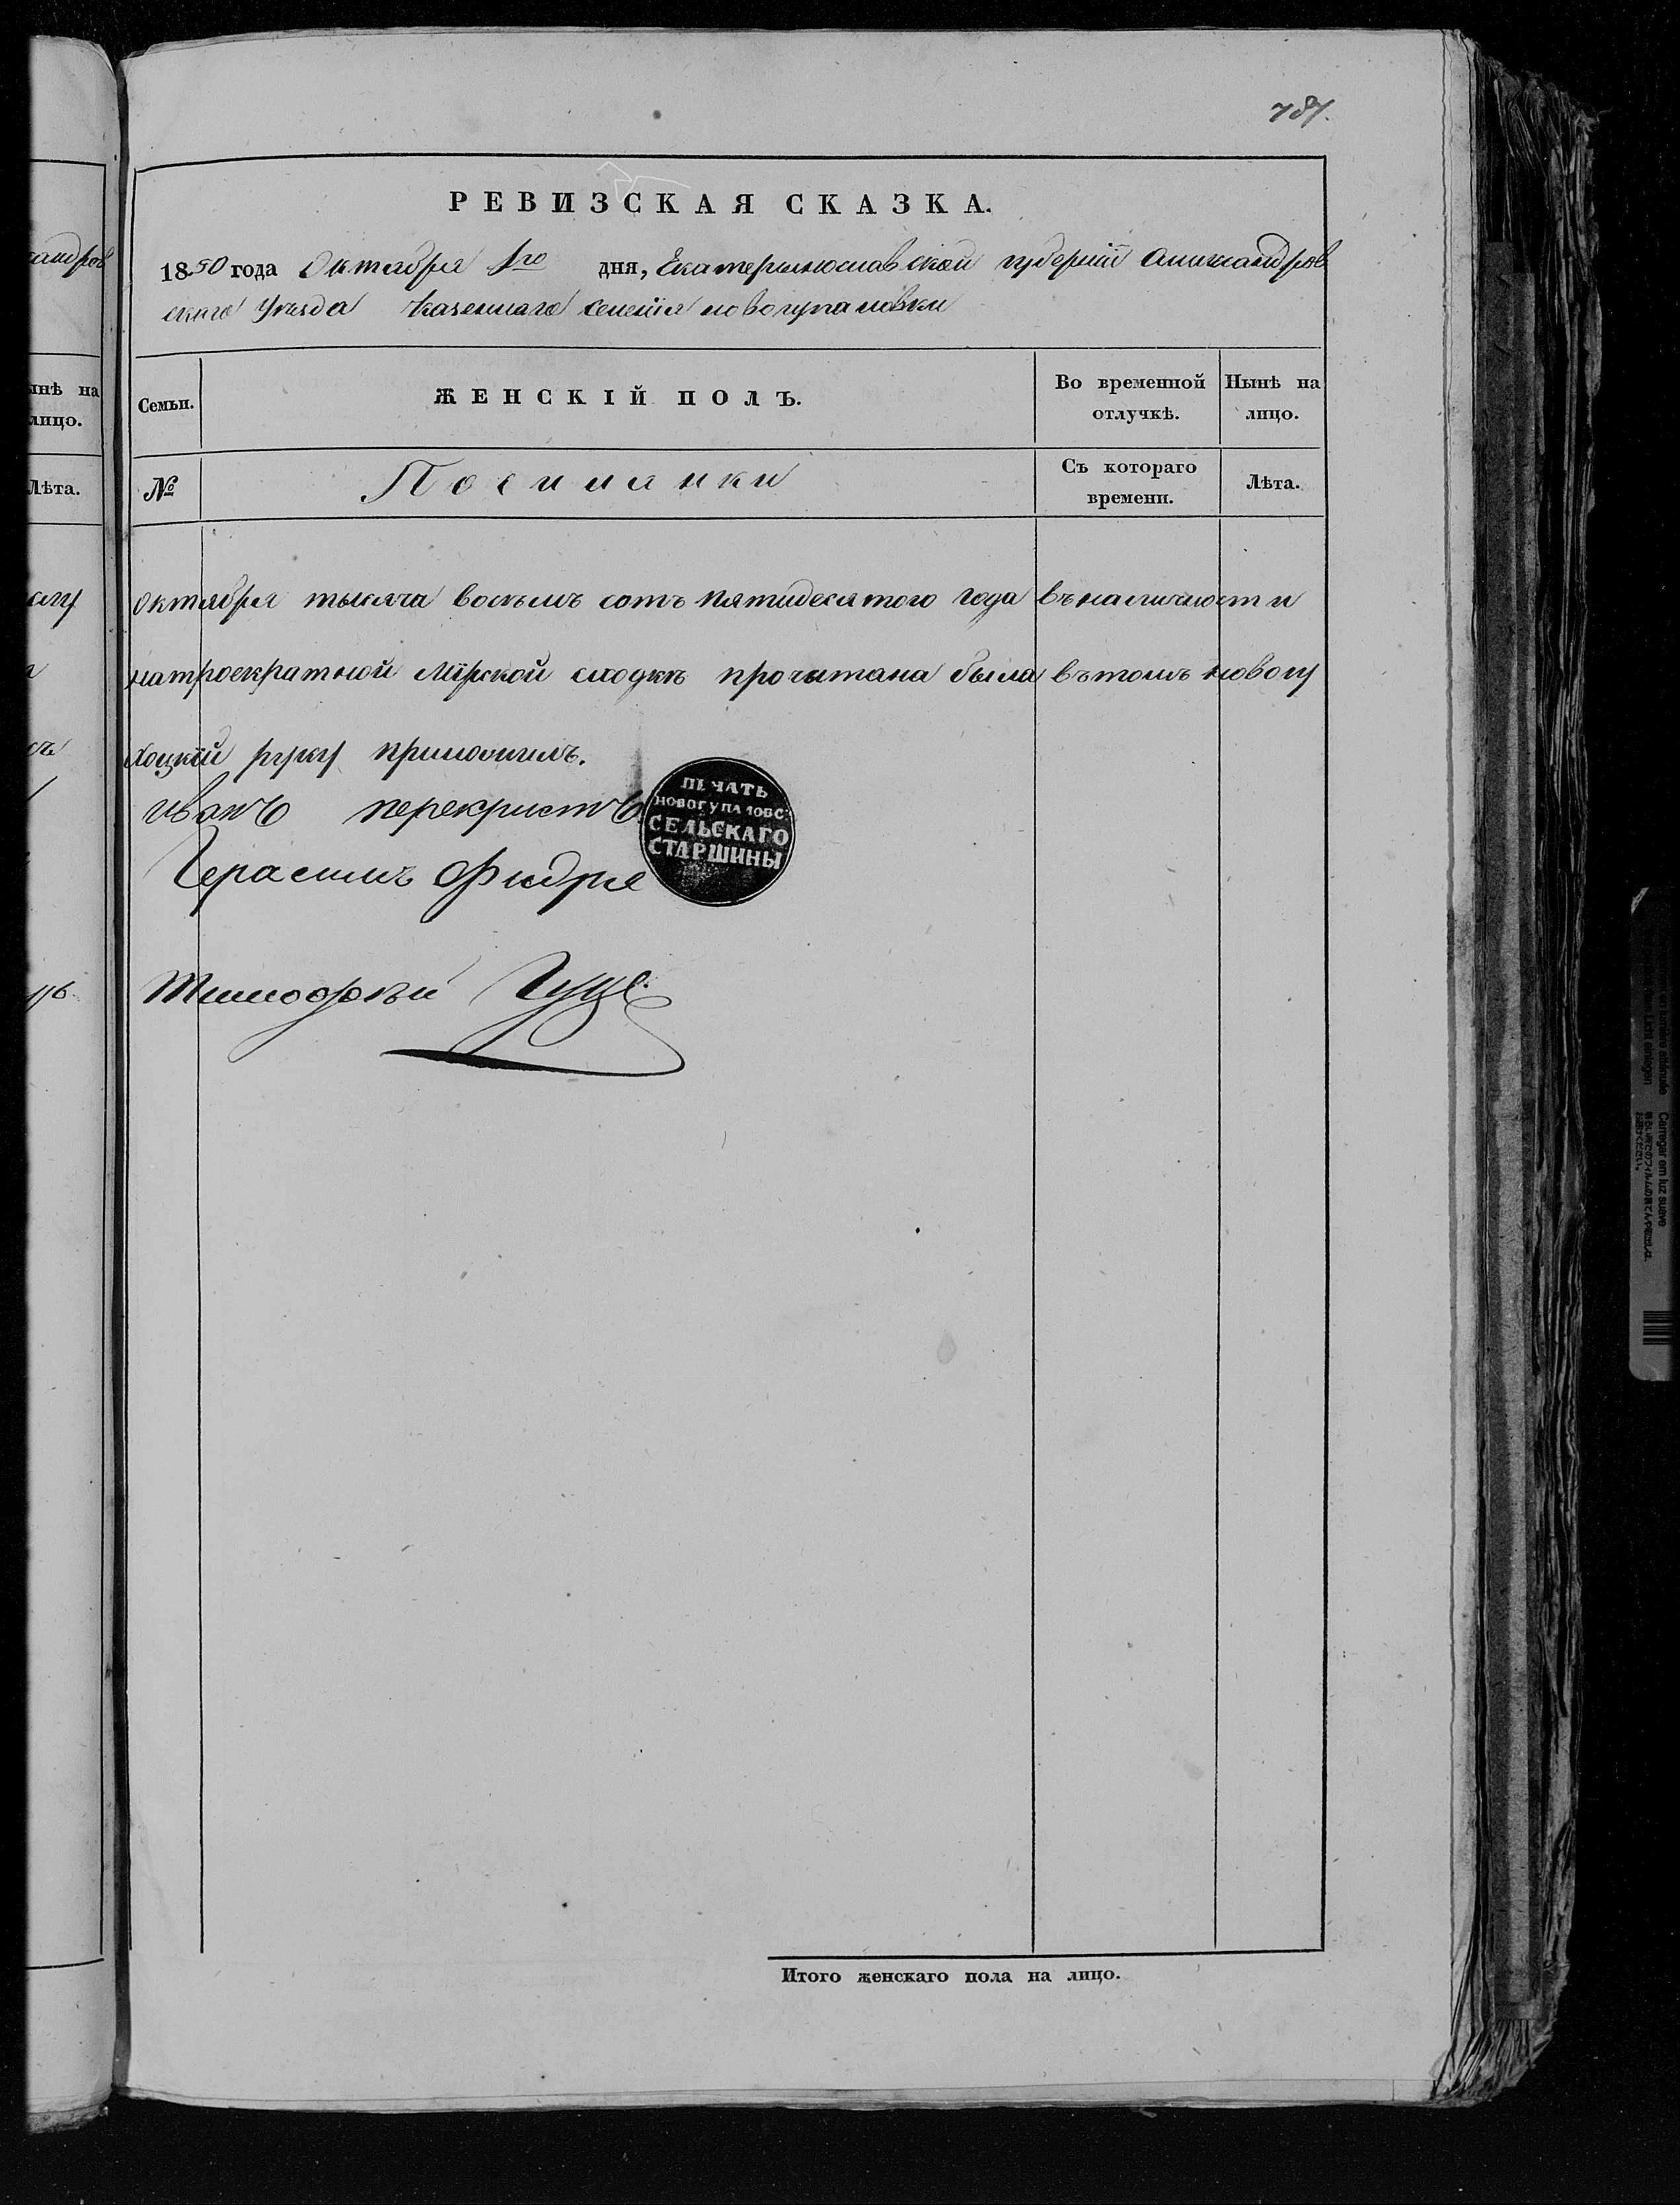 787.
РЕВИЗСКАЯ СКАЗКА.
1850 года Октября 1го дня, Екатеринославской губернии Александров
скаго Уѣзда Казеннаго селенія новогупаловки
Семьи.
ЖЕНСКІЙ ПОЛЪ.
Во временной отлучкѣ.
Нынѣ на лицо.
№
Поселянки
Съ котораго времени.
Лѣта.
Октября тысяча восемъ сотъ пятидесятого года въ наличности
натроекратной Мїрской сходкѣ прочитана была вътомъ новогу
хоцкїй руку приложилъ.
иванъ перекристъ
Герасимъ Фидря
Тимофѣй Гуце
ПЕЧАТЬ
НОВОГУПАЛОВС:
СЕЛЬСКАГО
СТАРШИНЫ
Итого женскаго пола на лицо.
андров
ынѣ на
лицо.
Лѣта.